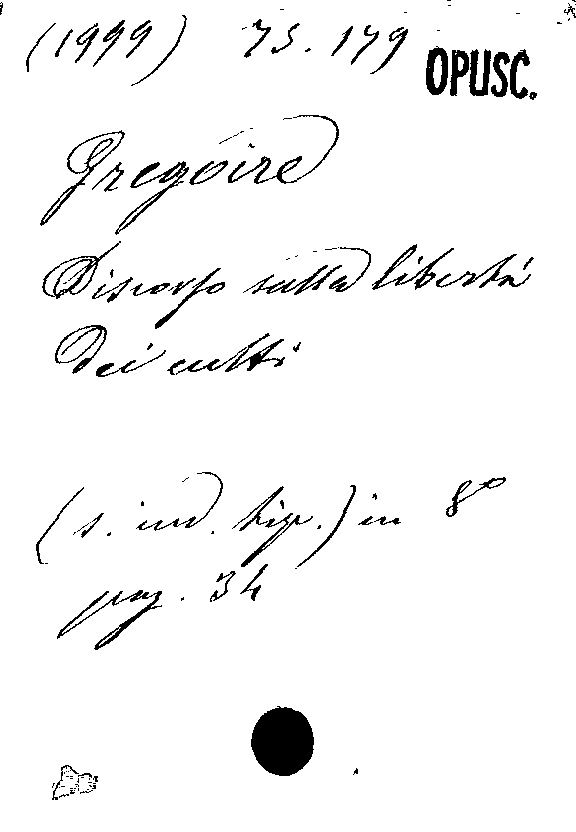 (1999) 75.179
OPUSC.
Gregoire
Discorso sulla libertá
dei culti
(s. ind. tip.) in 8º
pag. 34